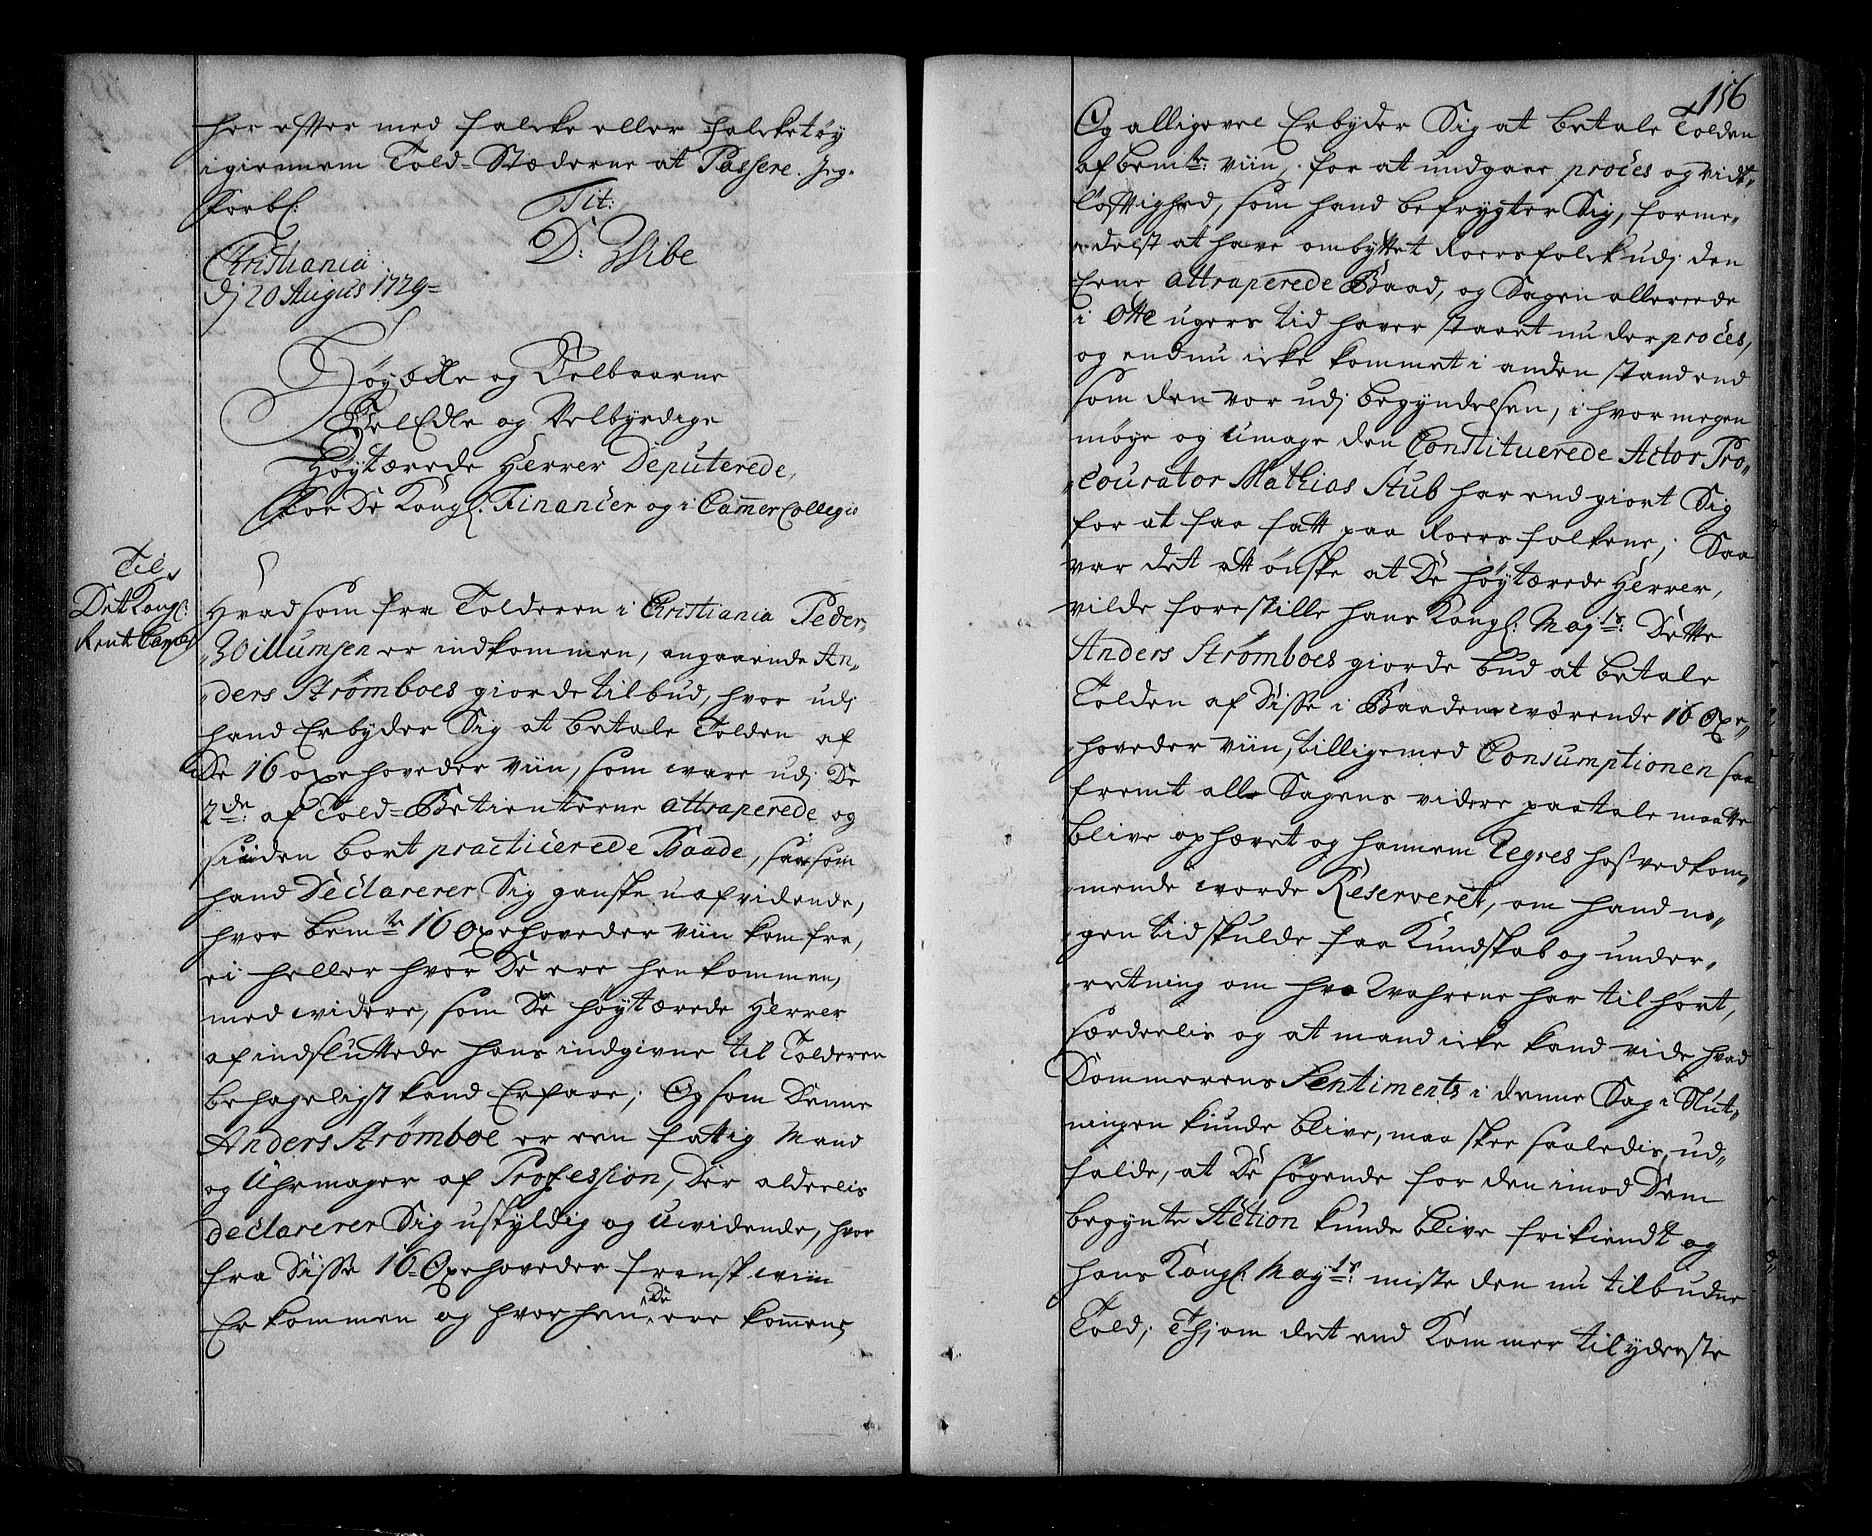 her efter med falcke eller falcketøy
igiennem Told-Stæderne at Passere. Jeg
forbl:
Tit:
D: Wibe
Christiania
dj 20 Augus 1729
Høyædle og Velbaarne
VelEdle og Velbyrdige
Høytærede Herrer Deputerede,
for De Kongl: Financer og i CammerCollegio
Til
Det Kongl:
Rente Camer
Hvad som fra Tolderen i Christiania Peder
Willumsen er indkommen, angaaende An„
„ders Strømboes giorde tilbud, hvor udj
hand Erbyder Sig at betale Tolden af
De 16 oxehoveder viin, som ware udj De
2de: af Told-Betienterne attraperede og
siden bort practicerede Baade, saasom
hand Declarerer Sig ganske uafvidende,
hvor bemte 16 Oxehoveder viin kom fra,
ei heller hvor De ere henkommen,
med widere, som De høytærede Herrer
af indsluttede hans indgivne til Tolderen
behageligst kand Erfare; Og som Denne
Anders Strømboe er een fattig Mand
og Uhrmager af Profession, Der alderlis
declarerer Sig uskyldig og uvidende, hvor
fra Disse 16 Oxehoveder fransk wiin
Er kommen og hvorhen De ere kommen,
156
Og alligevel Erbyder Sig at betale Tolden
af bemte: viin, for at undgaae proces og vidt„
løftighed, som hand befrygter Sig, forme„
„delst at have ombyttet Roersfolck udj den
Eene attraperede Baad, og Sagen allereede
i Otte ugers tid haver staaet under proces,
og endnu icke kommet i anden stand end
som den var udj begyndelsen, i hvor megen
møye og umage den Constituerede Actor Pro„
„courator Mathias Stub har end giort Sig
for at faa fatt paa Roers folkene; Saa
var det att ønske at De høytærede Herrer,
vilde forestille hans Kongl: Mayts: Dette
Anders Strømboes giorde bud at betale
Tolden af Disse i Baaden wærende 16 Oxe„
„hoveder viin, tilligemed Consumptionen saa
fremt all Sagens videre paatale maatte
blive ophævet og hannem Regres hos vedkom„
„mende worde Reserveret, om hand no„
„gen tid skulde faa Kundskab og under„
„retning om hvo Wahrene har tilhørt,
særdelis og at mand icke kand vide hvad
Dommerens Sentiments i denne Sag i Slut„
ningen kunde blive, maa skee saaledis ud„
falde, at De søgende for den imod Dem
begynte Action kunde blive frikiendt og
hans Kongl: Mayts: miste den nu tilbudne
Told; Thj om det end Kommer til yderste